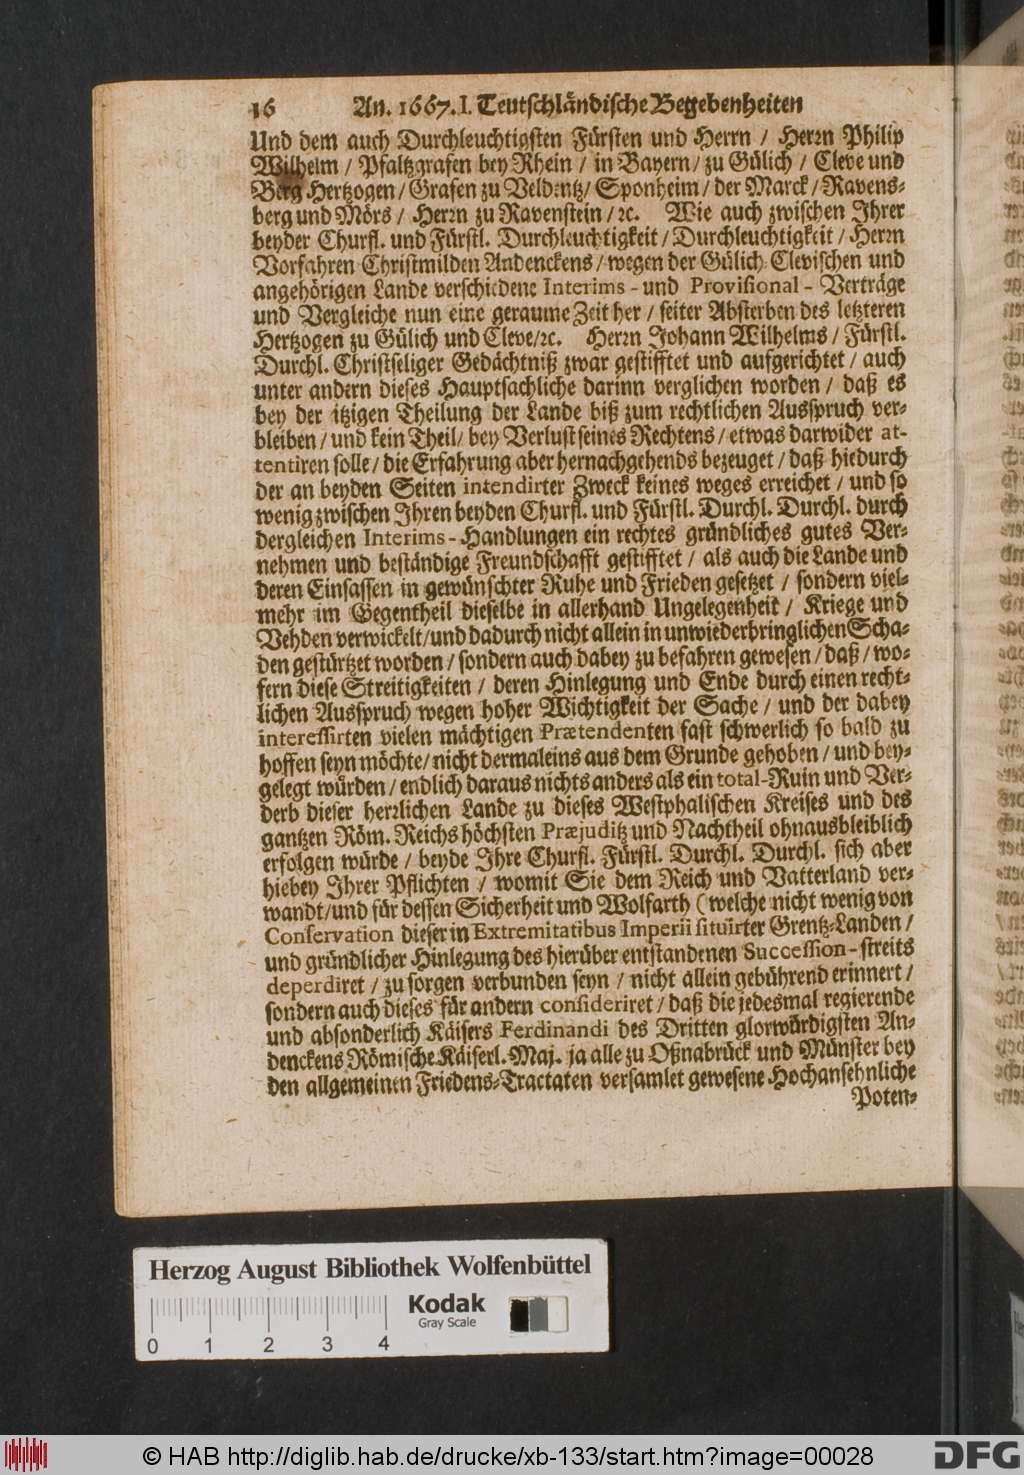 16 An. 1667. I. Teutschländische Begebenheiten
Und dem auch Durchleuchtigsten Fürsten und Herrn / Herrn Philip
Wilhelm / Pfaltzgrafen bey Rhein / in Bayern / zu Gülich / Cleve und
Berg Hertzogen / Grafen zu Veldentz / Sponheim / der Marck / Ravens-
berg und Mörs / Herrn zu Ravenstein / ꝛc. Wie auch zwischen Ihrer
beyder Churfl. und Fürstl. Durchleuchtigkeit / Durchleuchtigkeit / Herrn
Vorfahren Christmilden Andenckens / wegen der Gülich-Clevischen und
angehörigen Lande verschiedene Interims - und Provisional - Verträge
und Vergleiche nun eine geraume Zeit her / seiter Absterben des letzteren
Hertzogen zu Gülich und Cleve/ꝛc. Herrn Johann Wilhelms / Fürstl.
Durchl. Christseliger Gedächtniß zwar gestifftet und aufgerichtet / auch
unter andern dieses Hauptsachliche darinn verglichen worden / daß es
bey der itzigen Theilung der Lande biß zum rechtlichen Ausspruch ver-
bleiben / und kein Theil / bey Verlust seines Rechtens / etwas darwider at-
tentiren solle / die Erfahrung aber hernachgehends bezeuget / daß hiedurch
der an beyden Seiten intendirter Zweck keines weges erreichet / und so
wenig zwischen Ihren beyden Churfl. und Fürstl. Durchl. Durchl. durch
dergleichen Interims - Handlungen ein rechtes gründliches gutes Ver-
nehmen und beständige Freundschafft gestifftet / als auch die Lande und
deren Einsassen in gewünschter Ruhe und Frieden gesetzet / sondern viel-
mehr im Gegentheil dieselbe in allerhand Ungelegenheit / Kriege und
Vehden verwickelt/und dadurch nicht allein in unwiederbringlichen Scha-
den gestürtzet worden / sondern auch dabey zu befahren gewesen / daß / wo-
fern diese Streitigkeiten / deren Hinlegung und Ende durch einen recht-
lichen Ausspruch wegen hoher Wichtigkeit der Sache / und der dabey
interessirten vielen mächtigen Prætendenten fast schwerlich so bald zu
hoffen seyn möchte / nicht dermaleins aus dem Grunde gehoben / und bey-
gelegt würden / endlich daraus nichts anders als ein total-Ruin und Ver-
derb dieser herrlichen Lande zu dieses Westphalischen Kreises und des
gantzen Röm. Reichs höchsten Præjuditz und Nachtheil ohnausbleiblich
erfolgen würde / beyde Ihre Churfl. Fürstl. Durchl. Durchl. sich aber
hiebey Ihrer Pflichten / womit Sie dem Reich und Vatterland ver-
wandt/und für dessen Sicherheit und Wolfarth ( welche nicht wenig von
Conservation dieser in Extremitatibus Imperii situirter Grentz-Landen /
und gründlicher Hinlegung des hierüber entstandenen Succession - streits
deperdiret / zu sorgen verbunden seyn / nicht allein gebührend erinnert /
sondern auch dieses für andern consideriret / daß die jedesmal regierende
und absonderlich Käisers Ferdinandi des Dritten glorwürdigsten An-
denckens Römische Käiserl. Maj. ja alle zu Oßnabrück und Münster bey
den allgemeinen Friedens-Tractaten versamlet gewesene Hochansehnliche
Poten-
Herzog August Bibliothek Wolfenbüttel
Kodak
Gray Scale
0 1 2 3 4
© HAB http://diglib.hab.de/drucke/xb-133/start.htm?image=00028
DFG